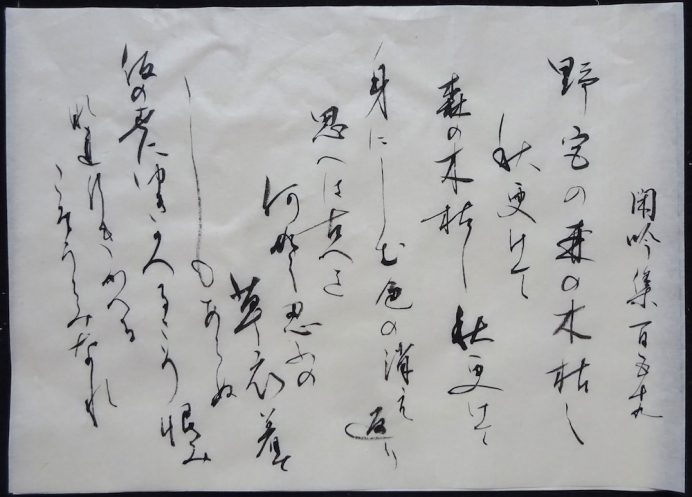 閑吟集百五十九
野宮の森の木枯し
秋更けて
森の木枯し 秋更けて
身にしむ色の消え返り
思へは古へを
何と忍ふの
草衣 着て
しもあらぬ
仮の世に ゆきかへるこそ恨み
なれ 行きかへる
こそうらみなれ